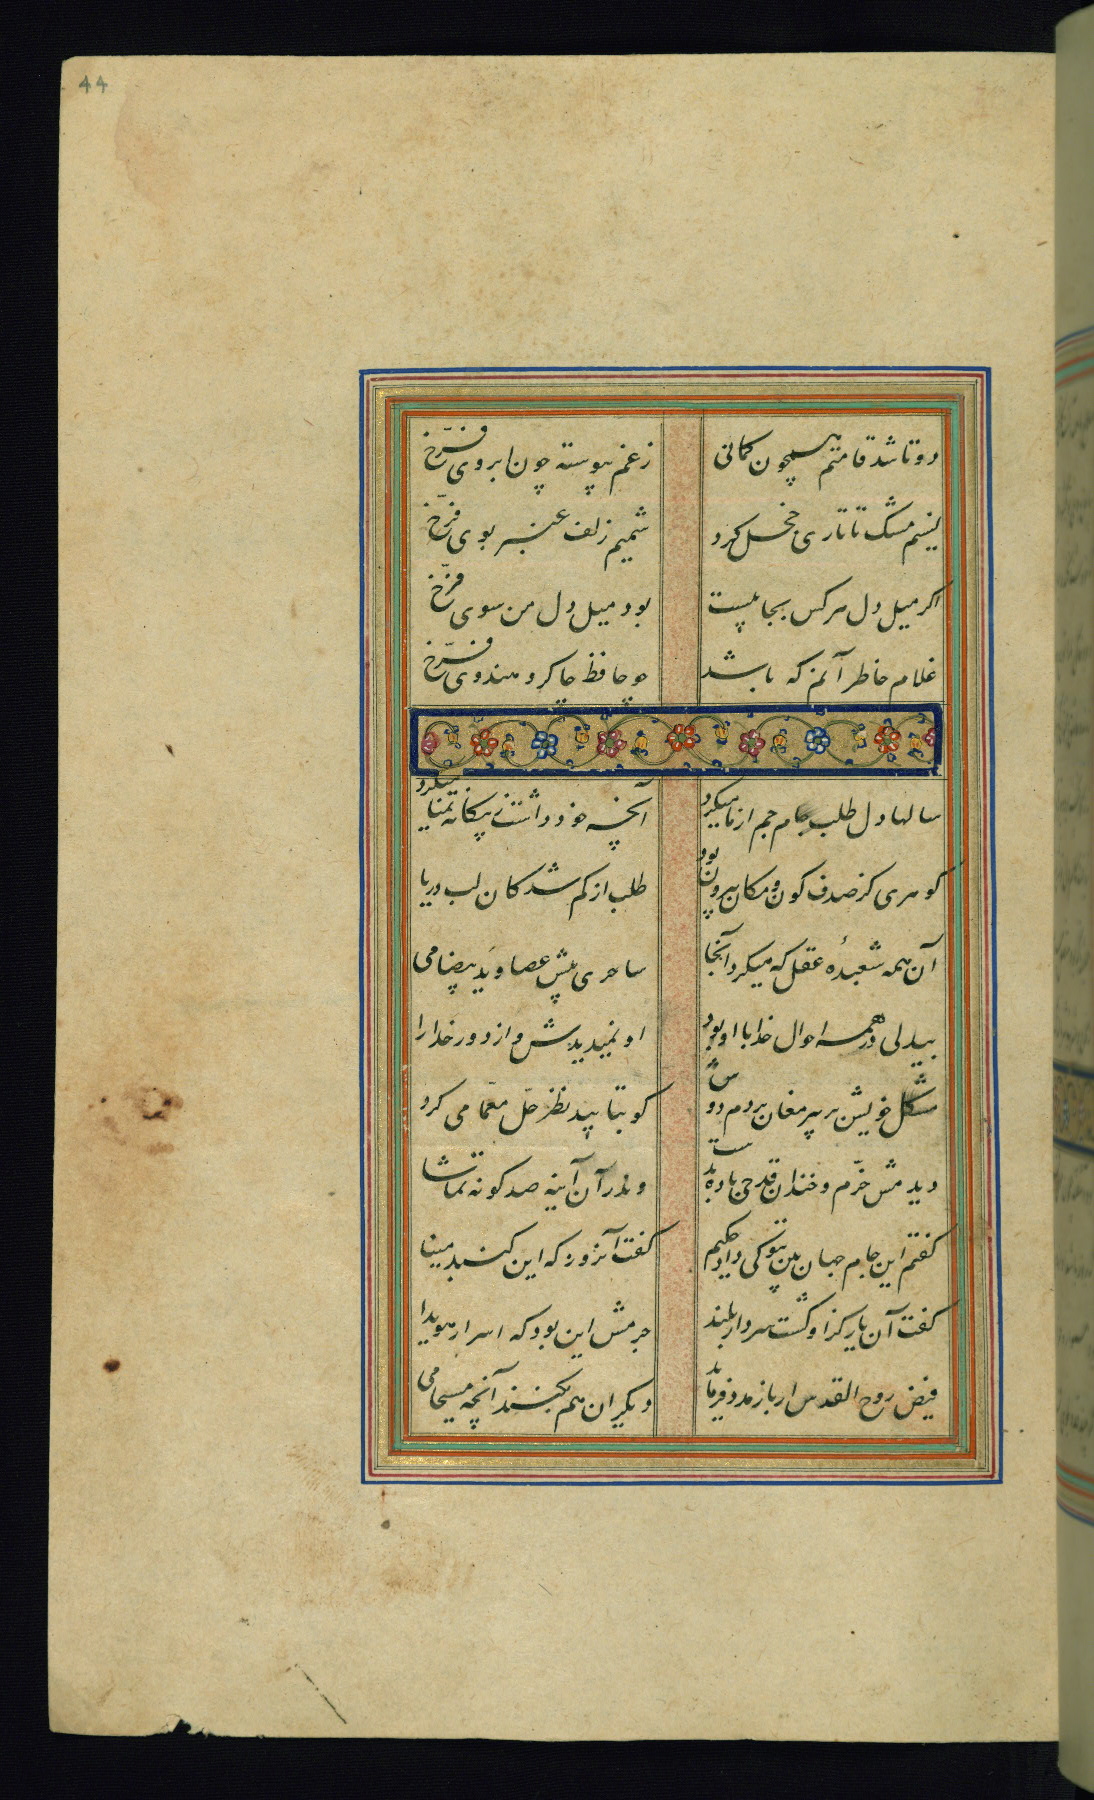 44
دوتا شد قامتم همچون کمانی
زغم پیوسته چون ابروی فرّخ
نسیم مشک تاتاری خجل کرد
شمیم زلف عنبر بوی فرّخ
اکر میل دل هرکس بجاییست
بود میل دل من سوی فرّخ
غلام خاطر آنم که باشد
چو حافظ چاکر و هندوی فرّخ
سالها دل طلب جام جم از ما میکرد
آنچه خود داشت ز بیکانه تمنا میکرد
کوهری کز صدف کون و مکان بیرون بود
طلب از کم شدکان لب دریا
آن همه شعبدهٔ عقل که میکرد آنجا
ساحری پیش عصا و ید بیضا می
بیدلی در همه احوال خدا با او بود
او نمیدیدش و از دور خدا را
مشکل خویش بر پیر مغان بردم دوش
کو بتایید نظر حلّ معمّا می کرد
دیدمش خرّم و خندان قدحی باده بدست
وندر آن آینه صد کونه تماشا
کفتم این جام جهان بین بتو کی داد حکیم
کفت آنروز که این کنبد مینا
کفت آن یار کزو کشت سر دار بلند
جرمش این بود که اسرار هویدا
فیض روح القدس ار باز مدد فرماید
دیکران هم بکنند آنچه مسیحا می